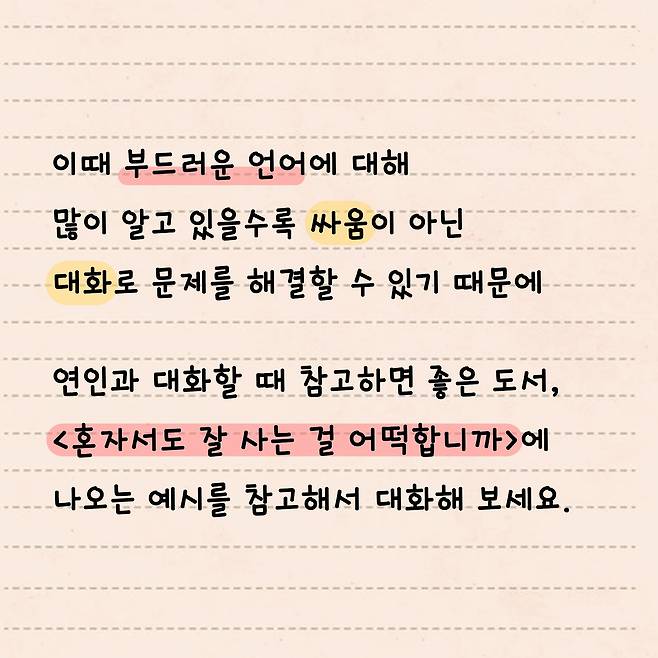 이때 부드러운 언어에 대해
많이 알고 있을수록 싸움이 아닌
대화로 문제를 해결할 수 있기 때문에
연인과 대화할 때 참고하면 좋은 도서,
<혼자서도 잘 사는 걸 어떡합니까>에
나오는 예시를 참고해서 대화해 보세요.